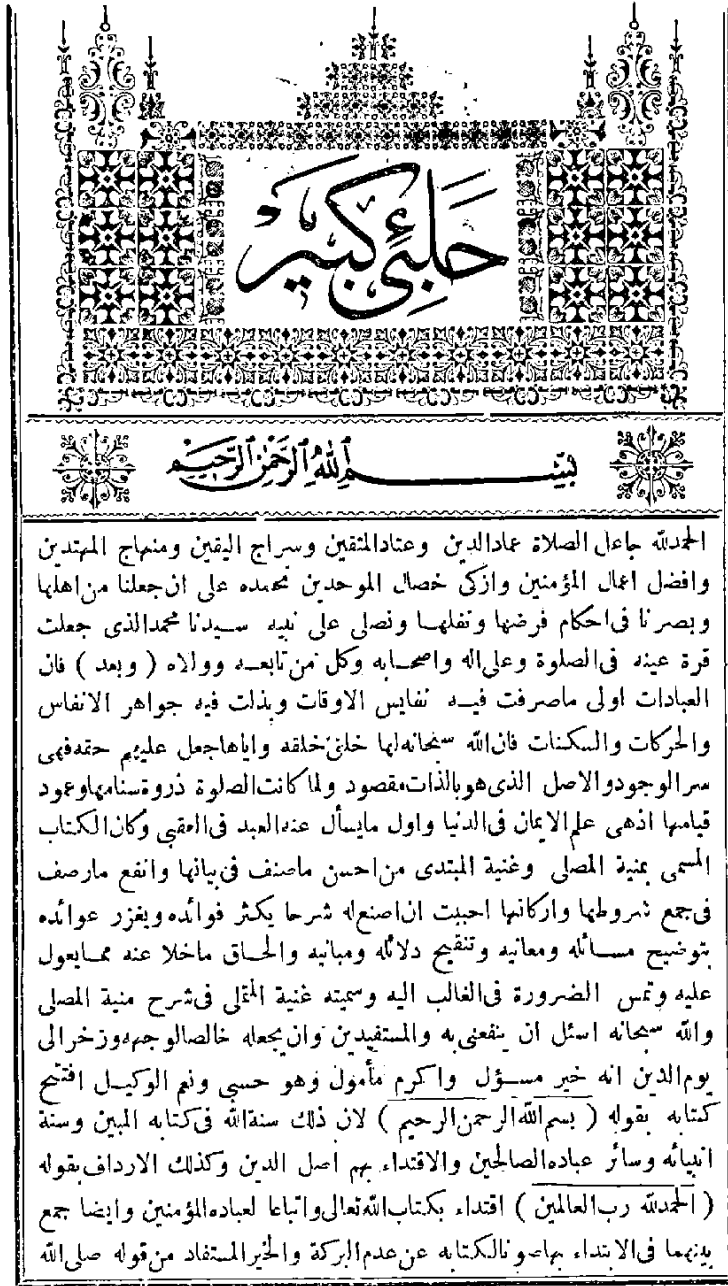 حلبئ كبير
بسم الله الرحمن الرحيم
الحمدلله جاعل الصلاة عمادالدين وعتادالمتقين وسراج اليقين ومنهاج المهتدين
وافضل اعمال المؤمنين وازكى خصال الموحدين نحمده على ان جعلنا من اهلها
وبصرنا فى احكام فرضها ونفلها ونصلى على نبيه سيدنا محمدالذى جعلت
قرة عينه فى الصلوة وعلى اله واصحابه وكل من تابعه ووالاه ( وبعد ) فان
العبادات اولى ماصرفت فيه نفايس الاوقات وبذلت فيه جواهر الانفاس
والحركات والسكنات فان الله سبحانه لها خلق خلقه واياها جعل عليهم حقه فهى
سر الوجود والاصل الذى هو بالذات مقصود ولما كانت الصلوة ذروة سنامها وعمود
قيامها اذهى علم الايمان فى الدنيا واول مايسأل عنه العبد فى العقبى وكان الكتاب
المسمى بمنية المصلى وغنية المبتدى من احسن ماصنف فى بيانها وانفع مارصف
فى جمع شروطها واركانها احببت ان اصنع له شرحا يكثر فوائده ويغزر عوائده
بتوضيح مسائله ومعانيه وتنقيح دلائله ومبانيه والحاق ماخلا عنه ممايعول
عليه وتمس الضرورة فى الغالب اليه وسميته غنية المتملى فى شرح منية المصلى
والله سبحانه اسئل ان ينفعنى به والمستفيدين وان يجعله خالصا لوجهه وزخرا لى
يوم الدين انه خير مسؤل واكرم مأمول وهو حسبى ونعم الوكيل افتتح
كتابه بقوله ( بسم الله الرحمن الرحيم ) لان ذلك سنة الله فى كتابه المبين وسنة
انبيائه وسائر عباده الصالحين والاقتداء بهم اصل الدين وكذلك الارداف بقوله
( الحمدلله رب العالمين ) اقتداء بكتاب الله تعالى واتباعا لعباده المؤمنين وايضا جمع
بينهما فى الابتداء بهاصونا لكتابه عن عدم البركة والخير المستفاد من قوله صلى الله